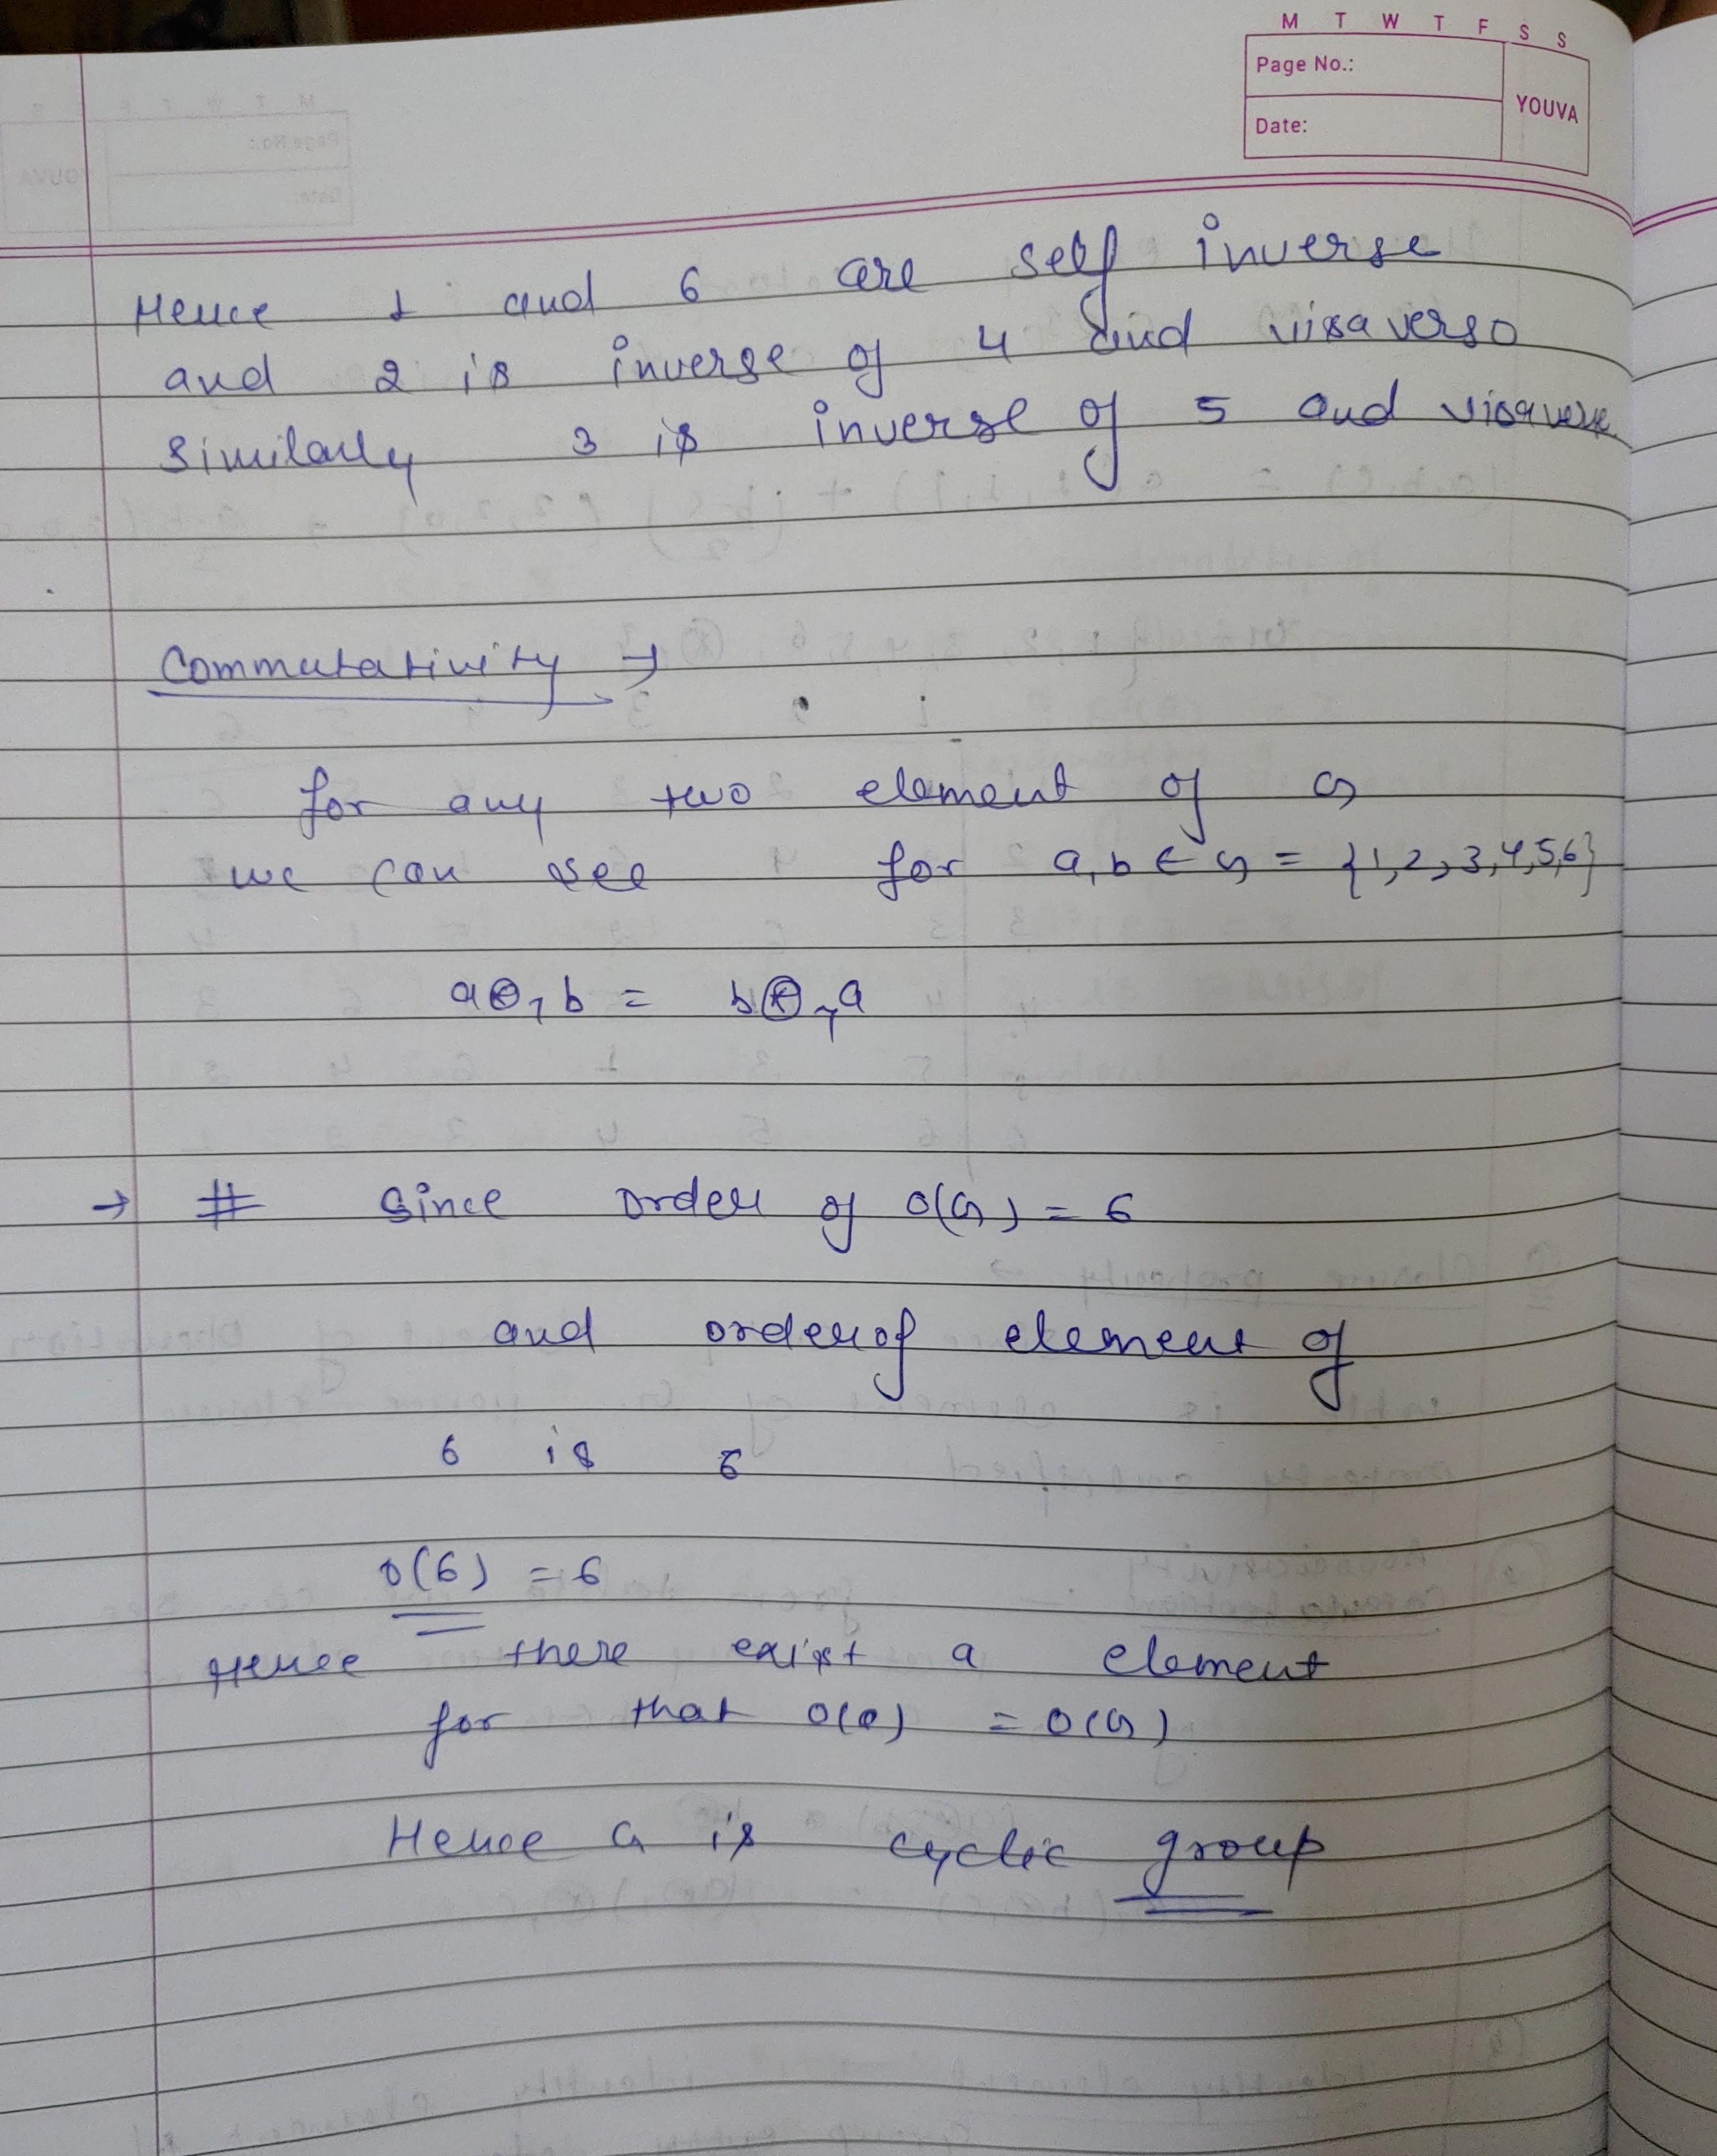 M T W T F S S
Page No.:
Date:
YOUVA
Hence 1 and 6 are self inverse
and 2 is inverse of 4 and visaverso
Similarly 3 is inverse of 5 and visaverse
Commutativity →
for any two element of G
we can see for a,b ∈ G = {1,2,3,4,5,6}
a⊗₇b = b⊗₇a
→ # Since order of O(G) = 6
and order of element of
6 is 6
o(6) = 6
Hence there exist a element
for that O(a) = O(G)
Hence G is cyclic group